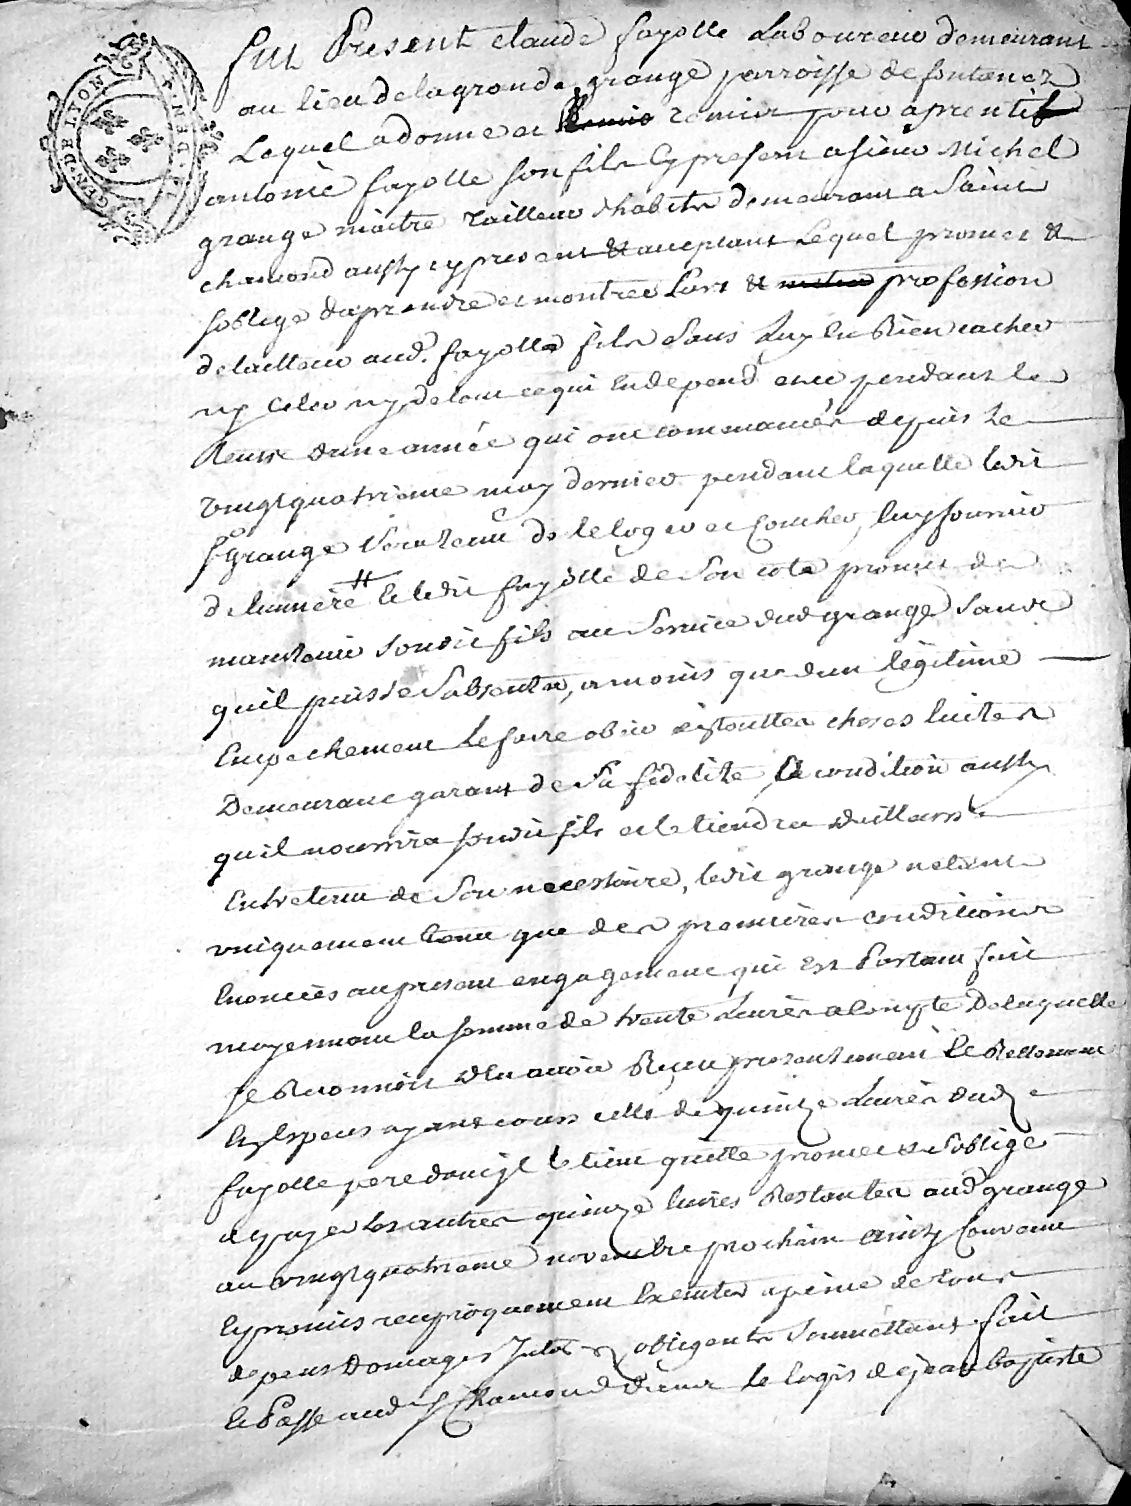 GEN. DE LYON
Fut Present claude fayolle Laboureur demeurant
au lieu de la grande grange parroisse de fontanez
Lequel a donné et remis pour aprentif
antoine fayolle son fils cy present a sieur Michel
grange maitre Tailleur d'habits demeurant a Saint
chamond aussy cy present & acceptant Lequel promet &
soblige daprendre et montrer Lart & profession
de tailleur aud. fayolle fils sans Luy en Rien cacher
ny celer ny de tout ce qui en depend et ce pendant le
tems dune année qui ont commancés depuis le
vingt quatrieme may dernier pendant laquelle ledit
Sr grange sera tenu de le loger et Coucher, luy fournir
de lumiere # et ledit fayolle de son coté promet de
maintenir sondit fils au service dud grange sans
quil puisse sabsenter, a moins que dun légitime
Empechement le faire obeir en touttes choses licites
Demeurant garant de sa fidelité, a condition aussy
quil nourrira sondit fils et le tiendra dailleurs
Entretenu de son necessaire, ledit grange netant
uniquement tenu que des premieres conditions
Enoncées au present engagement qui est Partant fait
moyennant la somme de trente Livres a Compte De laquelle
se Reconnoit den avoir Reçeu presentement & Reellement
En Especes ayant cours celle de quinze Livres dud
fayolle pere dont il le tient quitte promet & soblige
de payer les autres quinze livres Restantes aud grange
au vingt quatrieme novembre prochain ainsy Convenu
Et promis reciproquement Executer a peine de tous
depens Domages Interets obligeants soumettants. fait
et Passé aud St Chamond dans le logis de jean baptiste